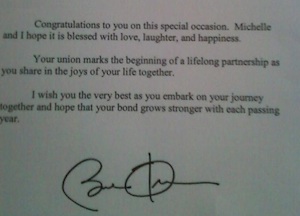 Congratulations to you on this special occasion. Michelle
and I hope it is blessed with love, laughter, and happiness.
Your union marks the beginning of a lifelong partnership as
you share in the joys of your life together.
I wish you the very best as you embark on your journey
together and hope that your bond grows stronger with each passing
year.